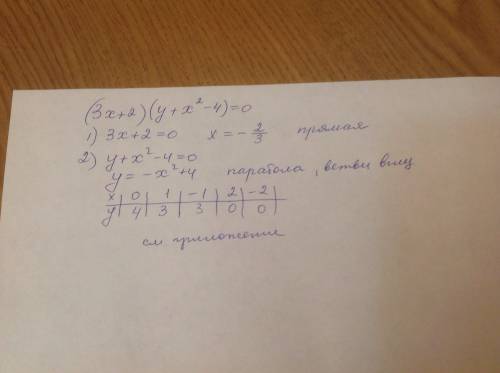 (3x+2)(y+x²-4)=0
1) 3x+2=0 x=-2/3 прямая
2) y+x²-4=0
y=-x²+4 парабола, ветви вниз
x | 0 | 1 | -1 | 2 | -2 |
y | 4 | 3 | 3 | 0 | 0 |
см приложение